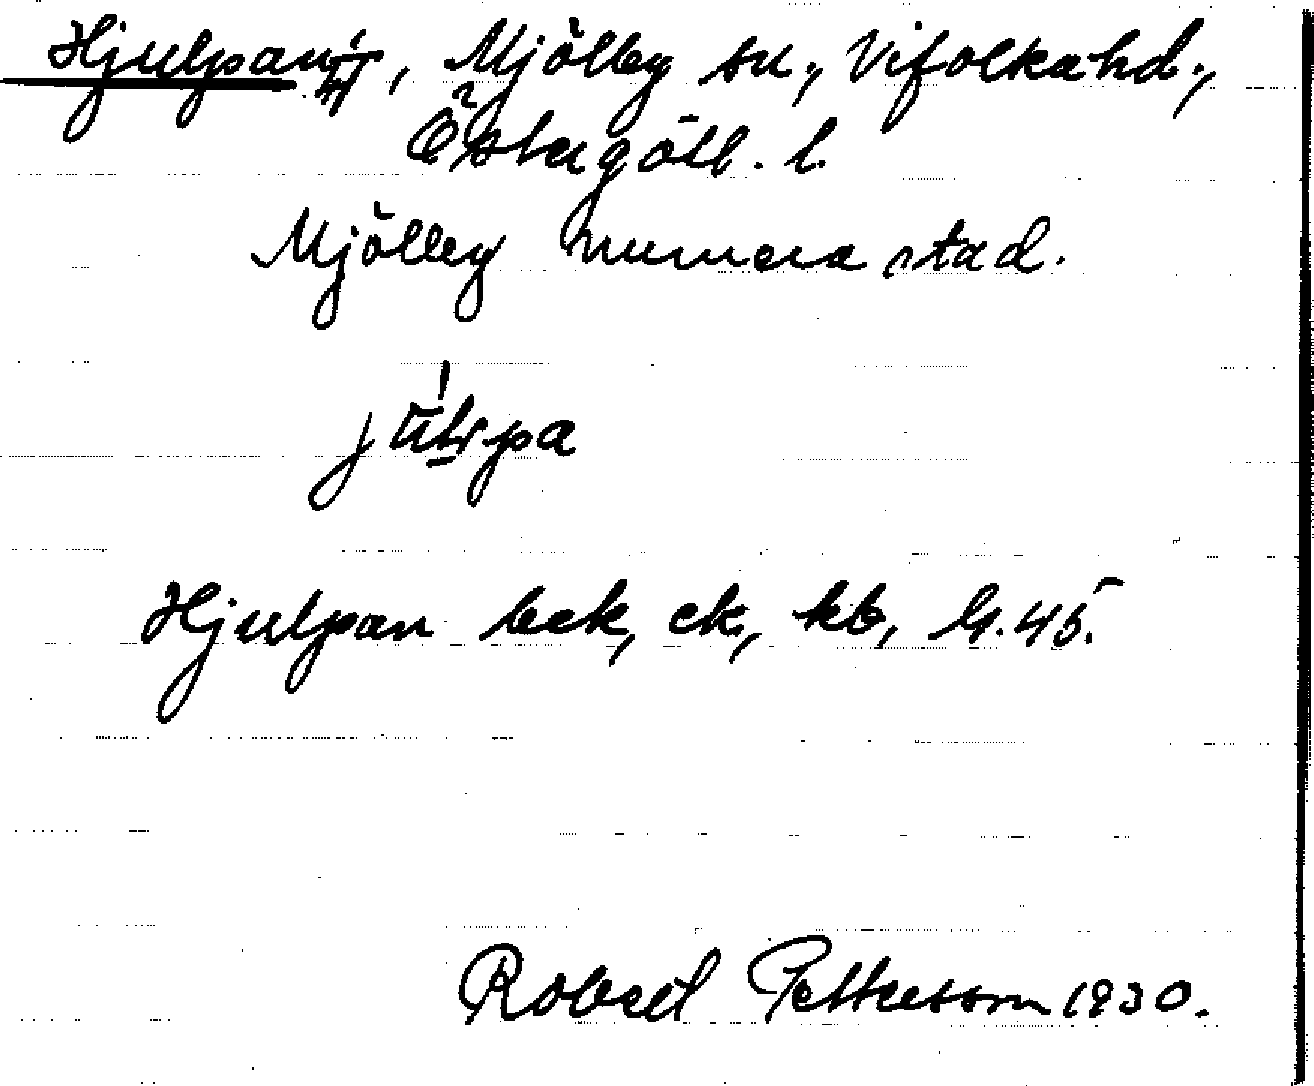 Hjulpan, Mjölby sn., Vifolkahd.,
Östergötl. l.
Mjölby numera stad.
Hjulpan bek, ek, kb, G. 45.
Robert Pettersson 1930.